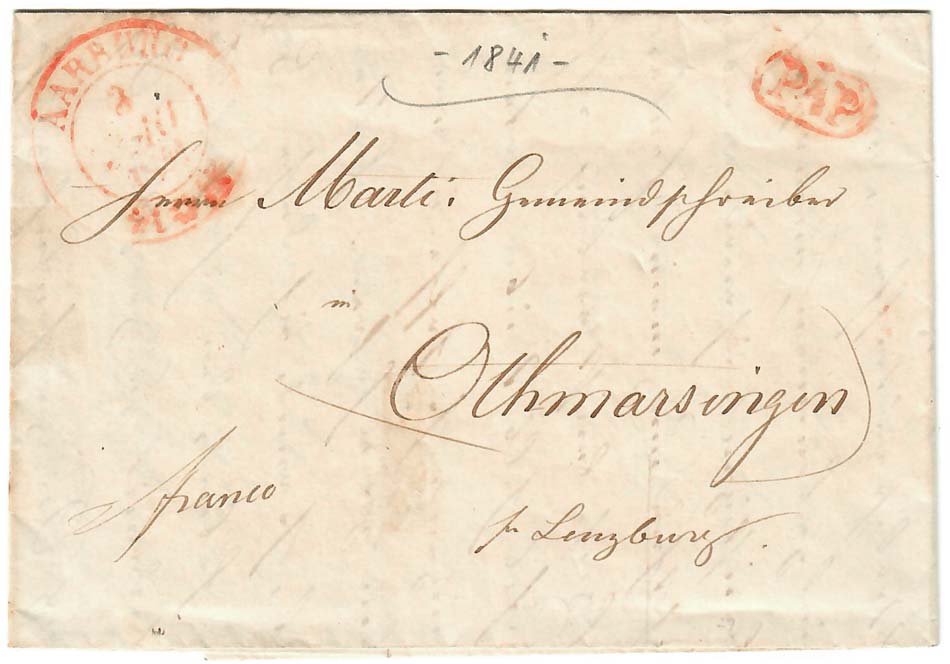 - 1841 -
AARBURG
P4P
Herrn Marti. Gemeindschreiber
in
Othmarsingen
franco
pr Lenzburg.